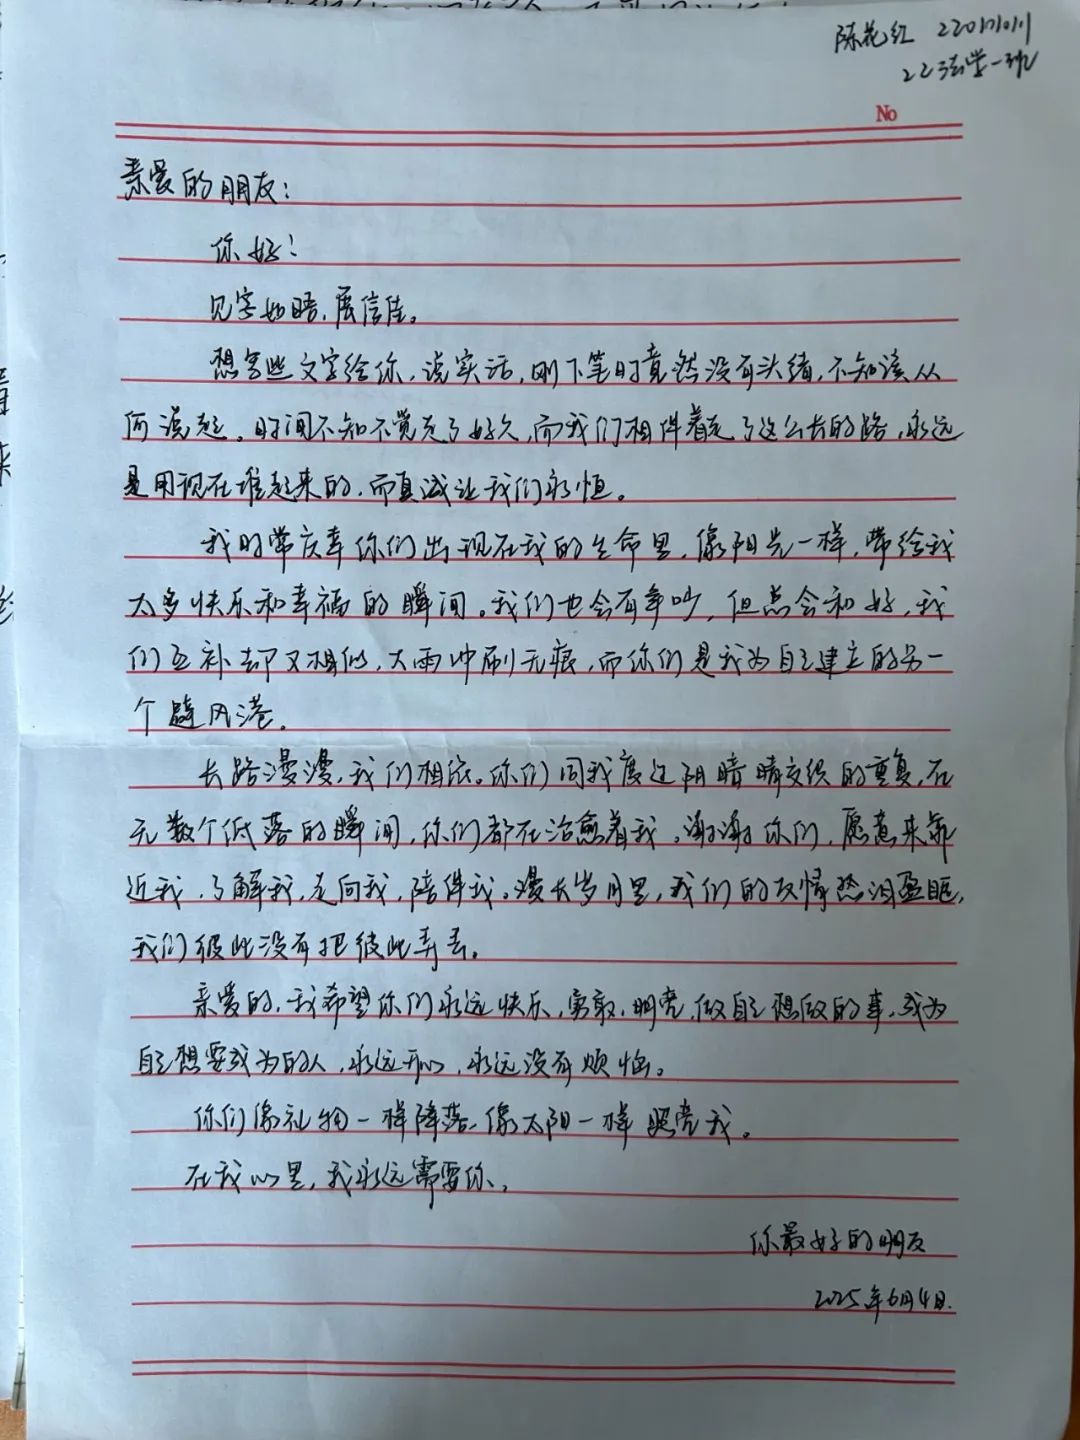 陈花红 22011101011
22法学一班
No
亲爱的朋友：
你好！
见字如晤，展信佳。
想写些文字给你，说实话，刚下笔时竟然没有头绪，不知该从
何说起。时间不知不觉走了好久，而我们相伴着走了这么长的路，永远
是用现在堆起来的，而真诚让我们永恒。
我时常庆幸你们出现在我的生命里，像阳光一样，带给我
太多快乐和幸福的瞬间。我们也会有争吵，但总会和好，我
们互补却又相似，大雨冲刷无痕，而你们是我为自己建立的另一
个避风港。
长路漫漫，我们相依。你们同我度过阴暗晴交织的重复，在
无数个低落的瞬间，你们都在治愈着我。谢谢你们，愿意来靠
近我，了解我，走向我，陪伴我。漫长岁月里，我们的友情热泪盈眶，
我们彼此没有把彼此弄丢。
亲爱的，我希望你们永远快乐，勇敢，明亮，做自己想做的事，成为
自己想要成为的人，永远开心，永远没有烦恼。
你们像礼物一样降落，像太阳一样照亮我。
在我心里，我永远需要你，
你最好的朋友
2025年6月4日.